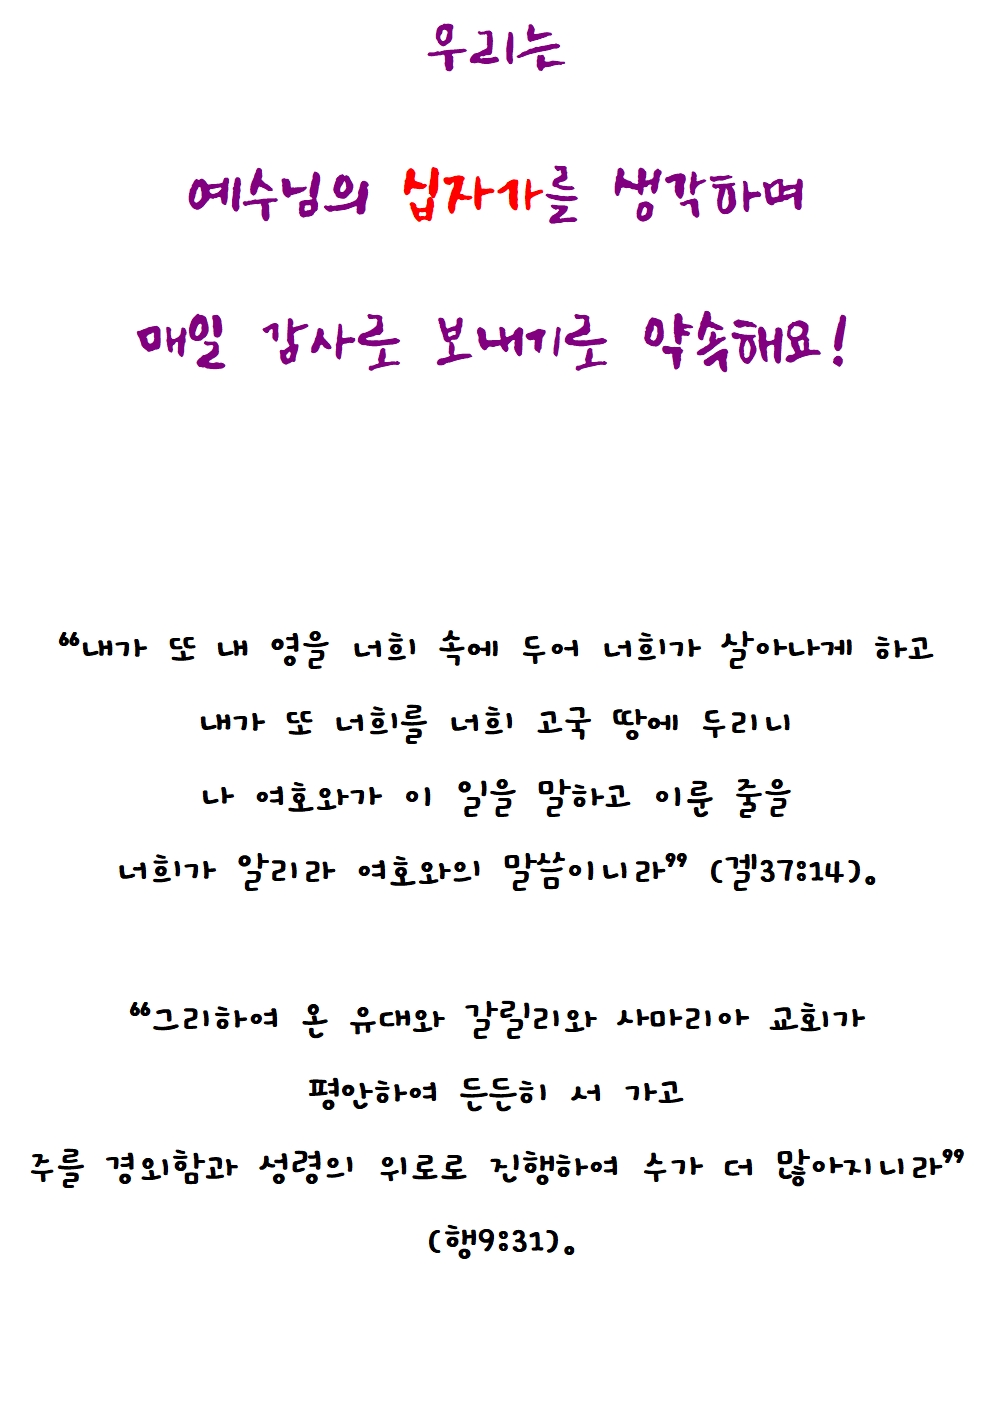 우리는
예수님의 십자가를 생각하며
매일 감사로 보내기로 약속해요!
“내가 또 내 영을 너희 속에 두어 너희가 살아나게 하고
내가 또 너희를 너희 고국 땅에 두리니
나 여호와가 이 일을 말하고 이룬 줄을
너희가 알리라 여호와의 말씀이니라” (겔37:14)。
“그리하여 온 유대와 갈릴리와 사마리아 교회가
평안하여 든든히 서 가고
주를 경외함과 성령의 위로로 진행하여 수가 더 많아지니라”
(행9:31)。